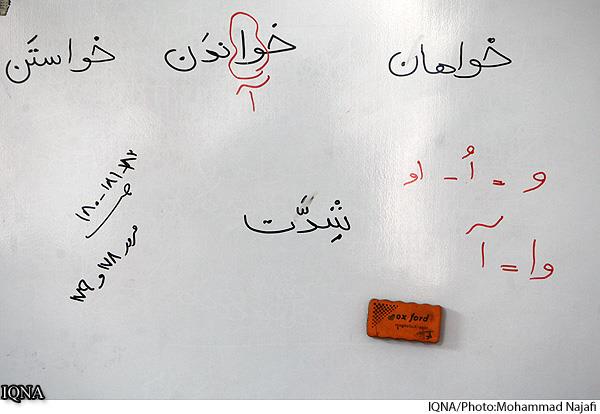 خواهان خواندَن خواستَن
آ
و = اُ - او
وا = آ
شِدَّت
۱۸۰-۱۸۱-۱۸۲
ox ford
IQNA
IQNA/Photo:Mohammad Najafi